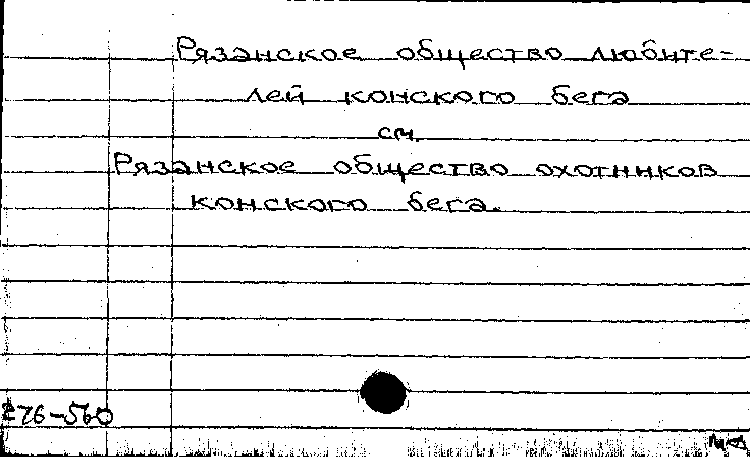 Рязанское общество любите-
лей конского бега
см.
Рязанское общество охотников
конского бега.
276-560